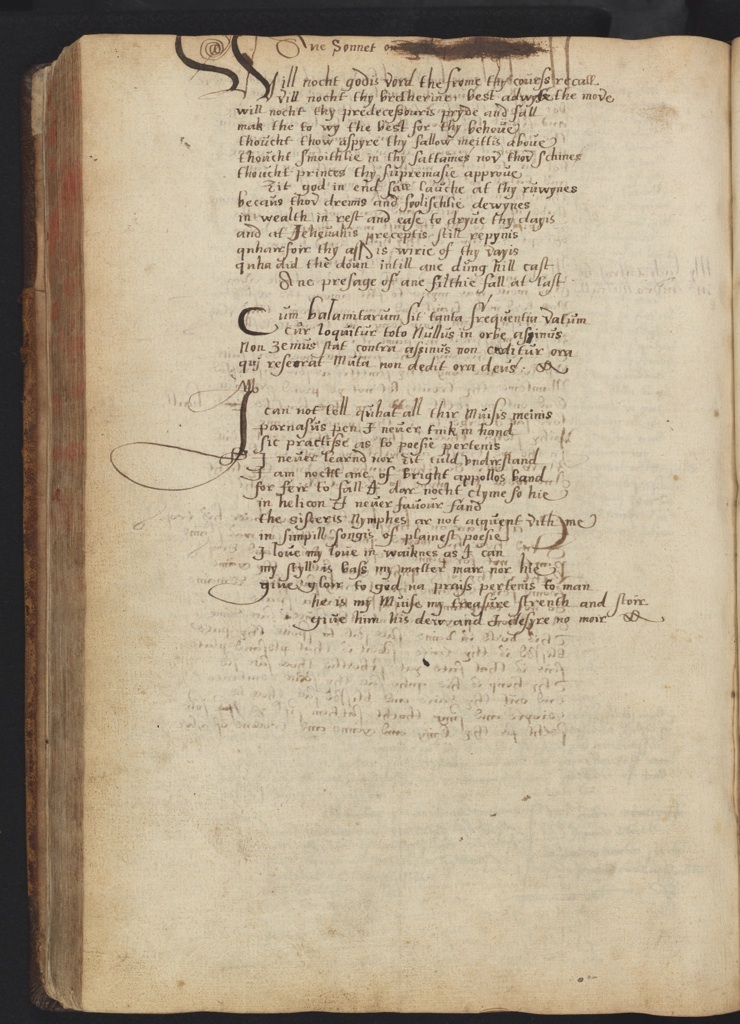 Ane Sonnet on
Will nocht godis vord the frome thy courss recall
vill nocht thy bretherine best adwyse the move
will nocht thy predecessouris pryde and fall
mak the to wy the best for thy behove
thoucht thow aspyre thy fallow meittis above
thoucht smoithlie in thy sattaines nov thov schines
thoucht princes thy supremasie approve
Yit god in end sall lauche at thy ruwynes
becaus thov dremis and foolischlie dewynes
in wealth in rest and ease to dryve thy dayis
and at Jehouahis preceptis still repynis
quhairfoir thy ass is wirie of thy vayis
quha did the doun intill ane dung hill cast
Ane presage of ane filthie fall at last
Cum balamitarum sit tanta frequentia vatum
Cur loquitur toto Nullus in orbe asinus
Non Zemus stat contra asinus non caditur ora
qui reserat Muta non dedit ora deus
I can not tell quhat all thir Muisis meinis
parnasus pen I never tuik in hand
sic practisse as to poesie pertenis
I never learnd nor yit culd vndirstand
I am nocht ane of bright appollos band
for feir to fall I dar nocht clyme so hie
in helicon I never favour fand
the sisteris Nymphes ar not aiquent vith me
in simpill songis of plainest poesie
I love my love in waiknes as I can
my styll is bass my matter mair nor hie
give gloir to god na praiss pertenis to man
he is my Muise my treasure strenth and stoir
give him his dew and I desyre no moir